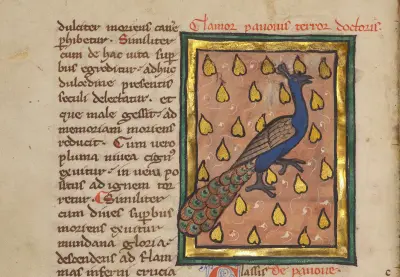 Clamor pavonis terror doctoris.
dulciter moriens cane
phibetur. Similiter
cum de hac uita sup
bus egreditur. adhuc
dulcedine presentis
seculi delectatur. et
que male gessit. ad
memoriam moriens
reducit. Cum uero
pluma niuea cign9
exuitur. in ueru po
situs ad ignem tor
retur. Similiter
cum diues supbus
moriens exuitur
mundana gloria.
descendens ad flam
mas inferni crucia
lassis De pauone